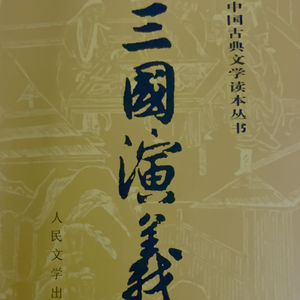 中国古典文学读本丛书
三國演義
人民文学出